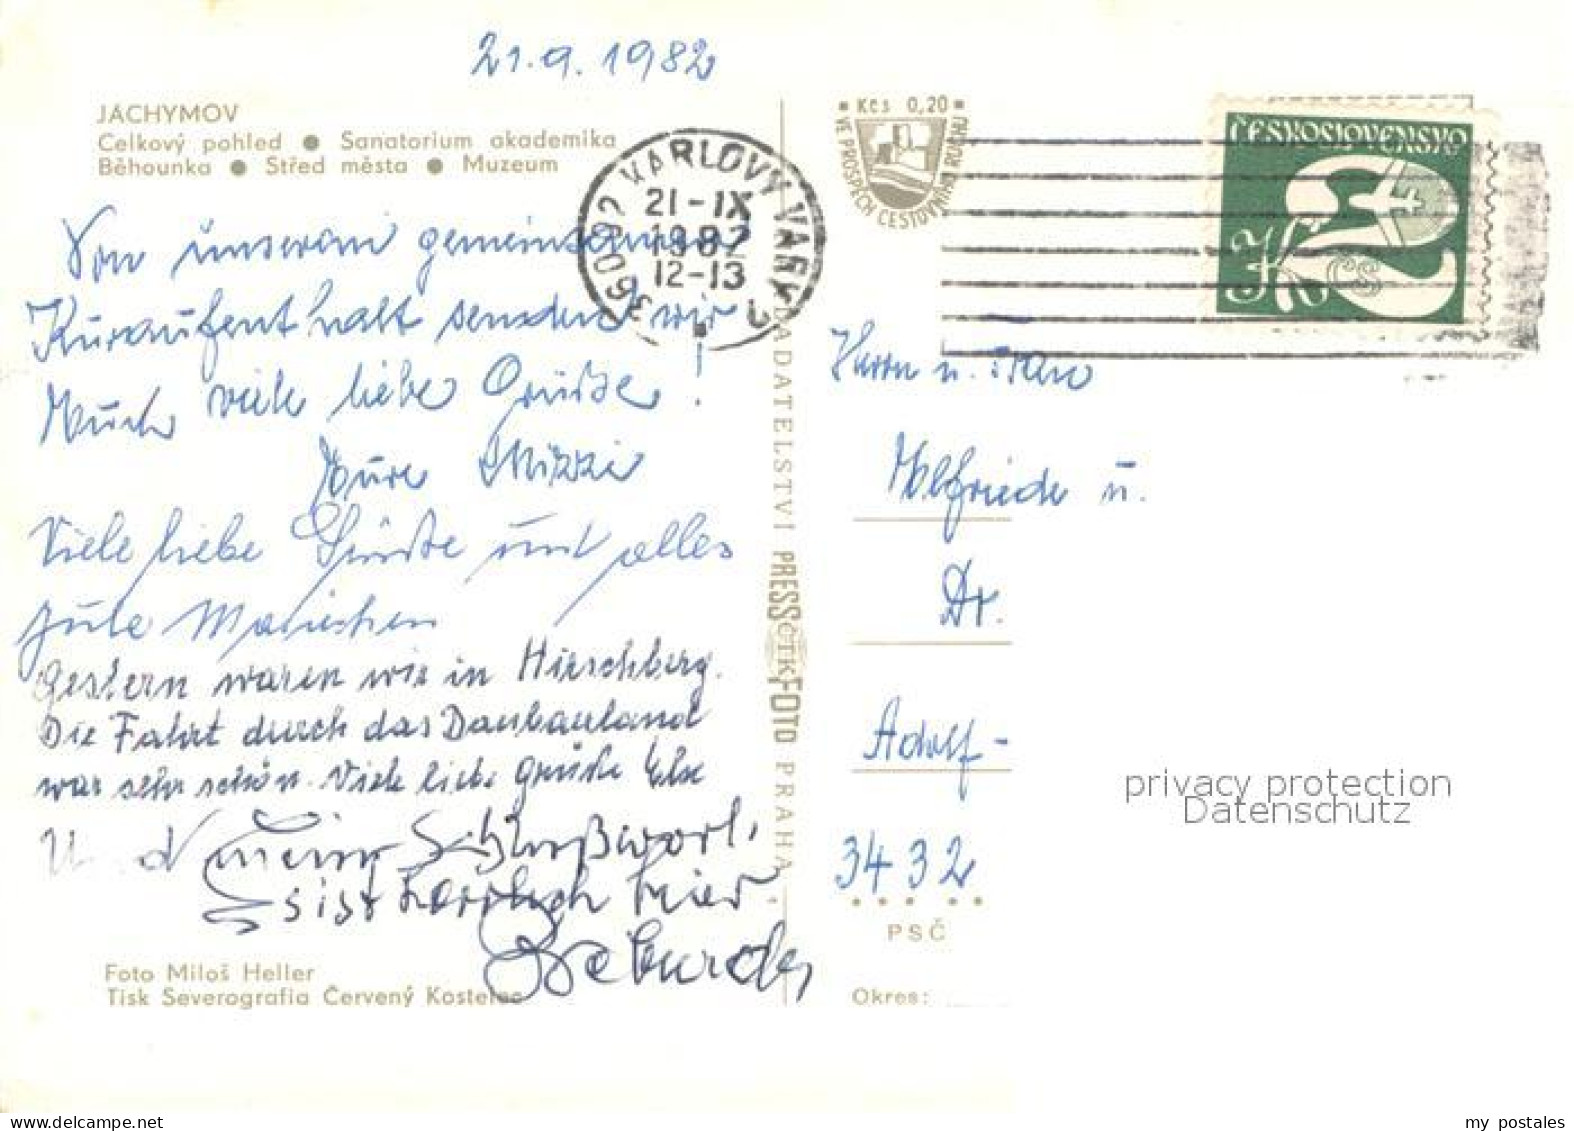 21.9.1982
JÁCHYMOV
Celkový pohled ● Sanatorium akademika
Běhounka ● Střed města ● Muzeum
Von unserem gemeinsamen
Kuraufenthalt senden wir
Euch viele liebe Grüße!
Eure Mizzi
Viele liebe Grüße und alles
gute Mariechen
Gestern waren wir in Hirschberg.
Die Fahrt durch das Daubauland
war sehr schön. Viele liebe Grüße Else
Und mein Schlußwort,
s'ist herrlich hier
Foto Miloš Heller
Tisk Severografia Červený Kostelec
36092 KARLOVY VARY
21-IX
1982
12-13
VYDAVATELSTVÍ PRESSFOTO PRAHA
ČTK
Kčs 0,20
VE PROSPĚCH CESTOVNÍHO RUCHU
ČESKOSLOVENSKO
2 Kčs
Herrn u. Frau
Elfriede u.
Dr.
Adolf-
3432
PSČ
Okres:
privacy protection
Datenschutz
my postales